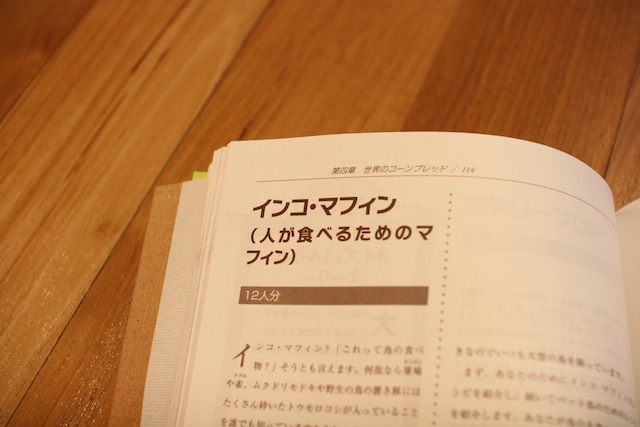 第四章 世界のコーンブレッド / 114
インコ・マフィン
(人が食べるためのマ
フィン)
12人分
インコ・マフィン?「これって鳥の食べ
物?」そうとも言えます。何故なら雄鶏
や雀、ムクドリモドキや野生の鳥の置き餌には
たくさん砕いたトウモロコシが入っていること
を誰でも知っていますから
きなのでいつも大型の鳥を飼っています。
まず、あなたのためにインコ・マフィン
シピを紹介し、続いてペット鳥のための
を紹介します。あなたが鳥の